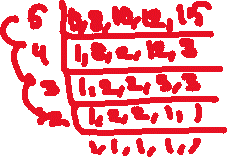 5 5, 8, 10, 12, 15
4 1, 8, 2, 12, 3
3 1, 2, 2, 3, 3
2 1, 2, 2, 1, 1
1, 1, 1, 1, 1